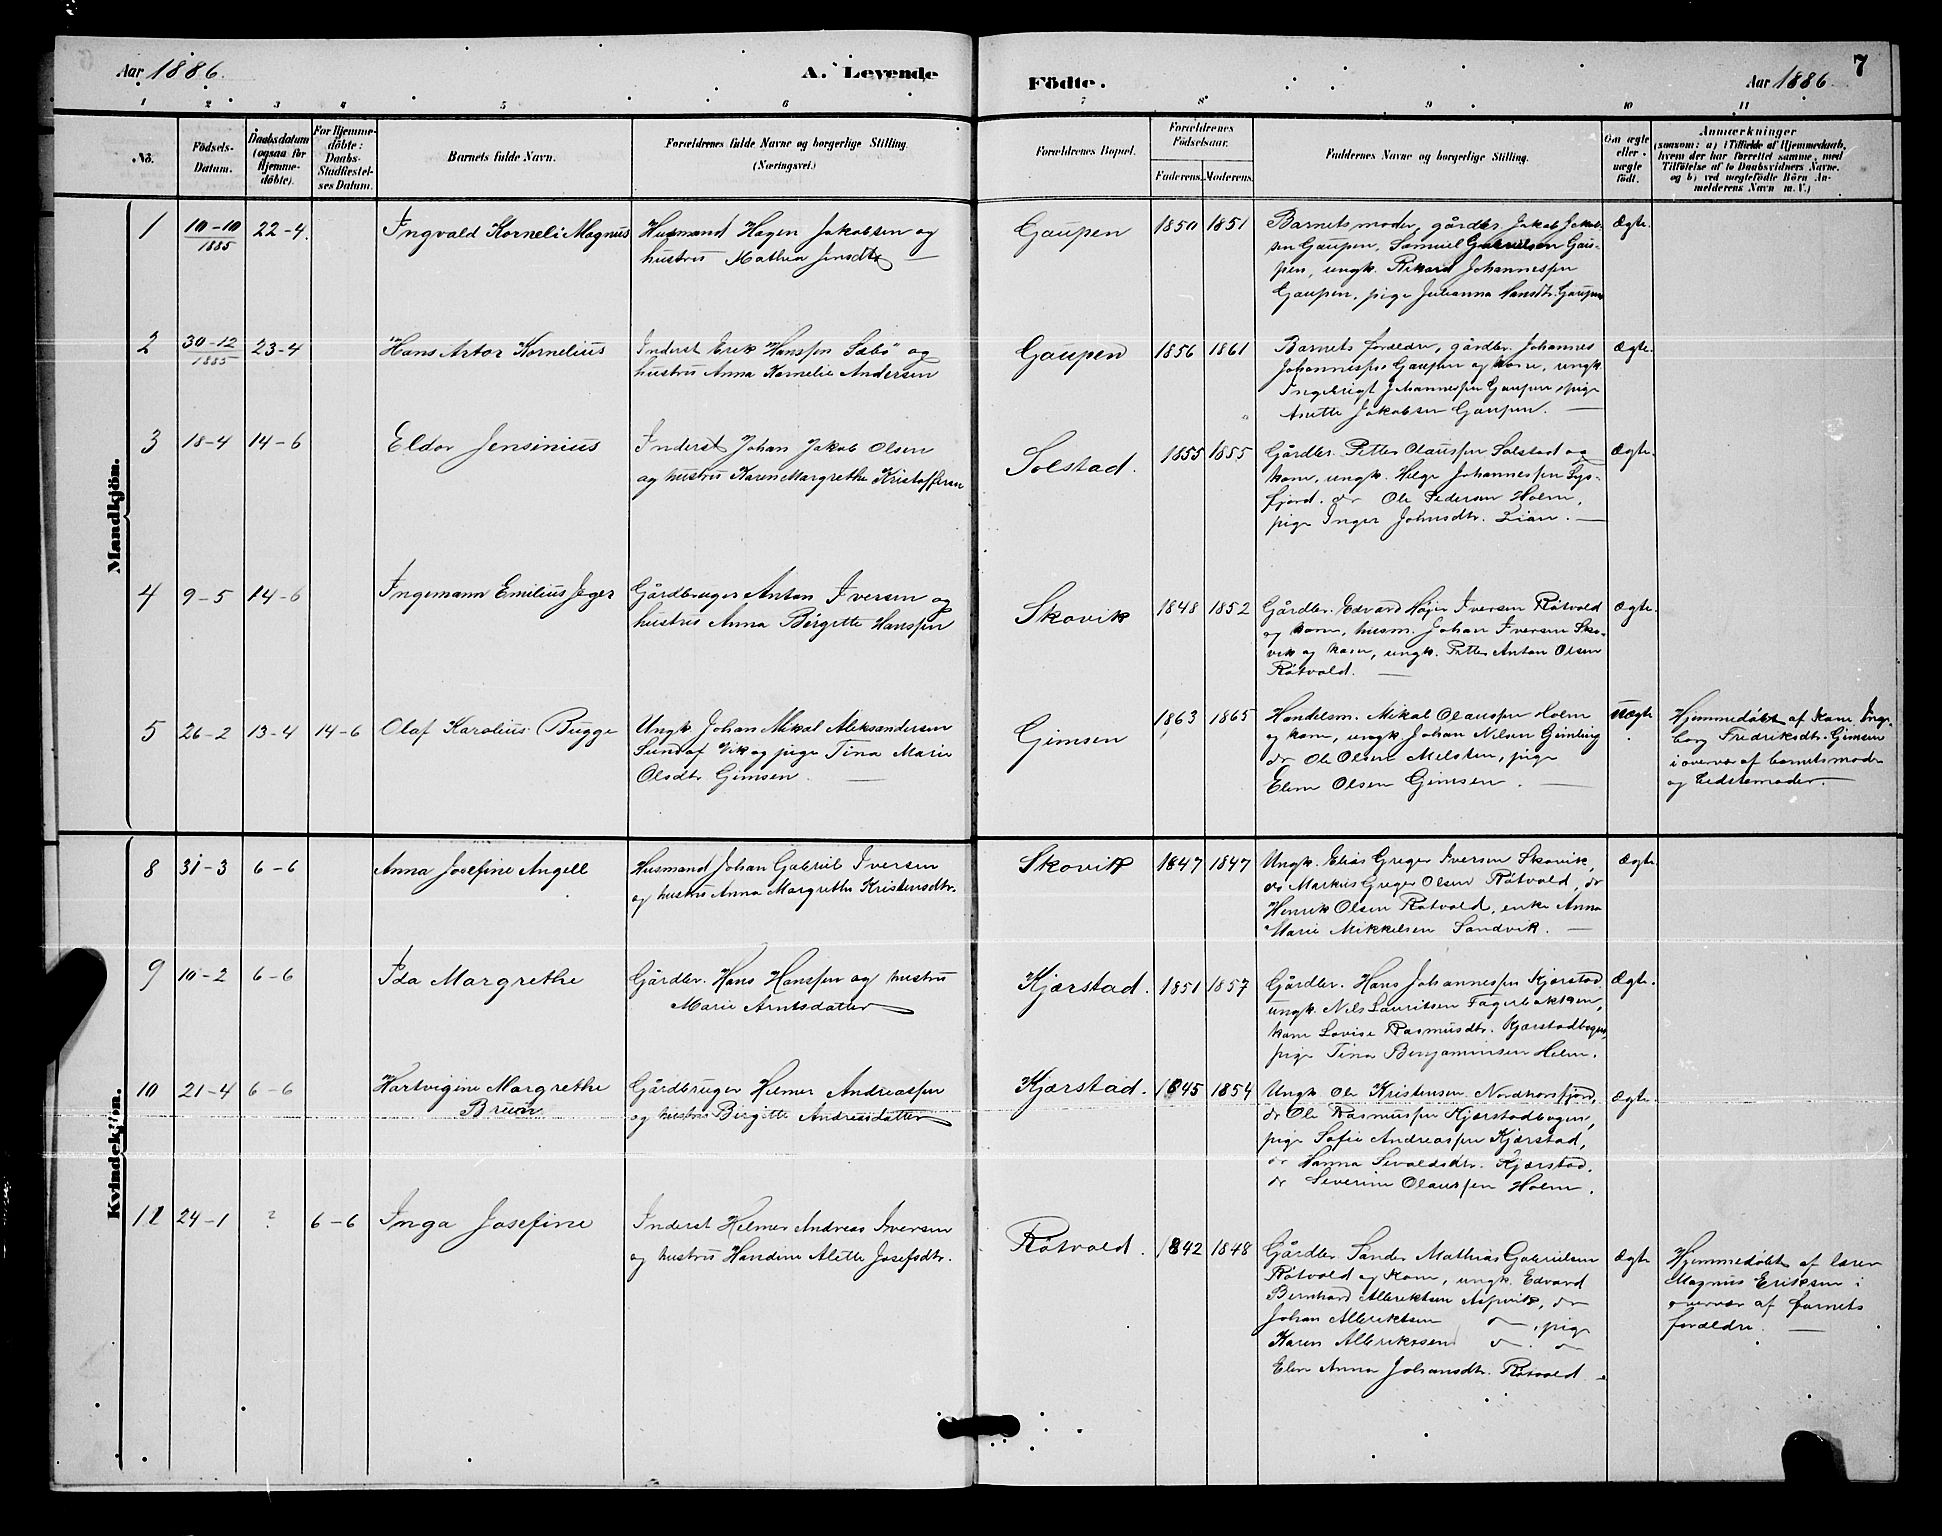 Aar 1886.
A. Levende
Födte.
Aar 1886
7
1 2 3 4 5 6 7 8 9 10 11
No.
Födsels-
Datum.
Daabsdatum
(ogsaa for
Hjemme-
döbte).
For Hjemme-
döbte:
Daabs-
Stadfæstel-
ses Datum.
Barnets fulde Navn.
Forældrenes fulde Navne og borgerlige Stilling.
(Næringsvei.)
Forældrenes Bopæl.
Forældrenes
Födselsaar.
Faderens. Moderens.
Faddernes Navne og borgerlige Stilling.
Om ægte
eller
uægte
födt.
Anmærkninger
(saasom: a) i Tilfælde af Hjemmedaab,
hvem der har forrettet samme, med
Tilföielse af to Daabsvidners Navne.
og b) ved uægtefödte Börn An-
melderens Navn m. V.)
Mandkjön.
1
10-10
1885
22-4.
Ingvald Korneli Magnus
Husmand Hagen Jakobsen og
hustru Mathea Jensdtr
Gaupen
1850 1851
Barnets moder, gårdbr Jakob Jakob-
sen Gaupen, Samuel Gabrielsen Gau-
pen, ungk. Rikard Johannessen
Gaupen, pige Julianna Hansdtr. Gaupen
Ægte.
2
30-12
1885
23-4
Hans Artor Kornelius
Inderst Erik Hanssen Sæbö og
hustru Anna Kornelie Andersen
Gaupen
1856 1861
Barnets forældre, gårdbr. Johannes
Johannessen Gaupen og kone, ungk.
Ingebrigt Johannessen Gaupen, pige
Anette Jakobsen Gaupen.
Ægte.
3
18-4
14-6
Eldor Jensinius
Inderst Johan Jakob Olsen
og hustru Karen Margrethe Kristoffersen
Solstad.
1855 1855
Gårdbr. Petter Olaussen Solstad og
kone, ungk. Helge Johannessen
fjord. do Ole Pedersen Holm,
pige Inger Johnsdtr. Lian.
Ægte.
4
9-5
14-6
Ingemann Emilius Jeger
Gårdbruger Anton Iversen og
hustru Anna Birgitte Hanssen
Skovik
1848 1852
Gårdbr. Edvard Höjer Iversen Råtvold
og kone, husm. Johan Iversen Sko-
vik og kone, ungk. Petter Anton Olsen
Råtvold.
Ægte.
5
26-2
13-4
14-6
Olaf Karolius Bugge
Ungk. Johan Mikal Aleksandersen
Vik og pige Tina Marie
Olsdtr Gimsen.
Gimsen
1863 1865
Handelsm. Mikal Olaussen Holm
og kone, ungk. Johan Nilsen
do Ole Olsen Melsten, pige
Elen Olsen Gimsen.
Uægte
Hjemmedöbt af Kone Inge-
borg Fredriksdtr. Gimsen
i overvær af barnets moder
og bedstemoder.
Kvindekjön.
8
31-3
6-6
Anna Josefine Angell
Husmand Johan Gabriel Iversen
og hustru Anna Margrethe Kristensdtr.
Skovik
1847 1847
Ungk. Elias Greger Iversen Skovik,
do Markus Greger Olsen Råtvold, do
Henrik Olsen Råtvold, enke Anna
Marie Mikkelsen Sandvik.
Ægte
9
10-2
6-6
Ida Margrethe
Gårdbr. Hans Hanssen og hustru
Marie Arntsdatter
Kjærstad.
1851 1857
Gårdbr. Hans Johannessen Kjærstad
ungk. Nils Lauritsen Fagerbakken,
kone Lovise Rasmusdtr. Kjærstadbogen,
pige Tina Benjaminsen Holm.
Ægte.
10
21-4
6-6
Hartvigine Margrethe
Bruun
Gårdbruger Helmer Andreassen
og hustru Birgitte Andreasdatter
Kjærstad.
1845 1854
Ungk Ole Kristensen Nordhorsfjord,
do Ole Rasmussen Kjærstadbogen,
pige Sofie Andreassen Kjærstad,
do Hanna Sivaldsdtr. Kjærstad.
do Severine Olaussen Holm.
Ægte.
11
24-1
?
6-6
Inga Josefine
Inderst Helmer Andreas Iversen
og hustru Handine Alette Josefsdtr.
Råtvold.
1842 1848
Gårdbr. Sander Mathias Gabrielsen
Råtvold og kone, ungk. Edvard
Bernhard Albriktsen Aspvik, do
Johan Albriktsen do, pige
Karen Albriktsen do. do
Elen Anna Johansdtr. Råtvold
Ægte
Hjemmedöbt af lærer
Magnus Eriksen i
overvær af barnets
forældre.